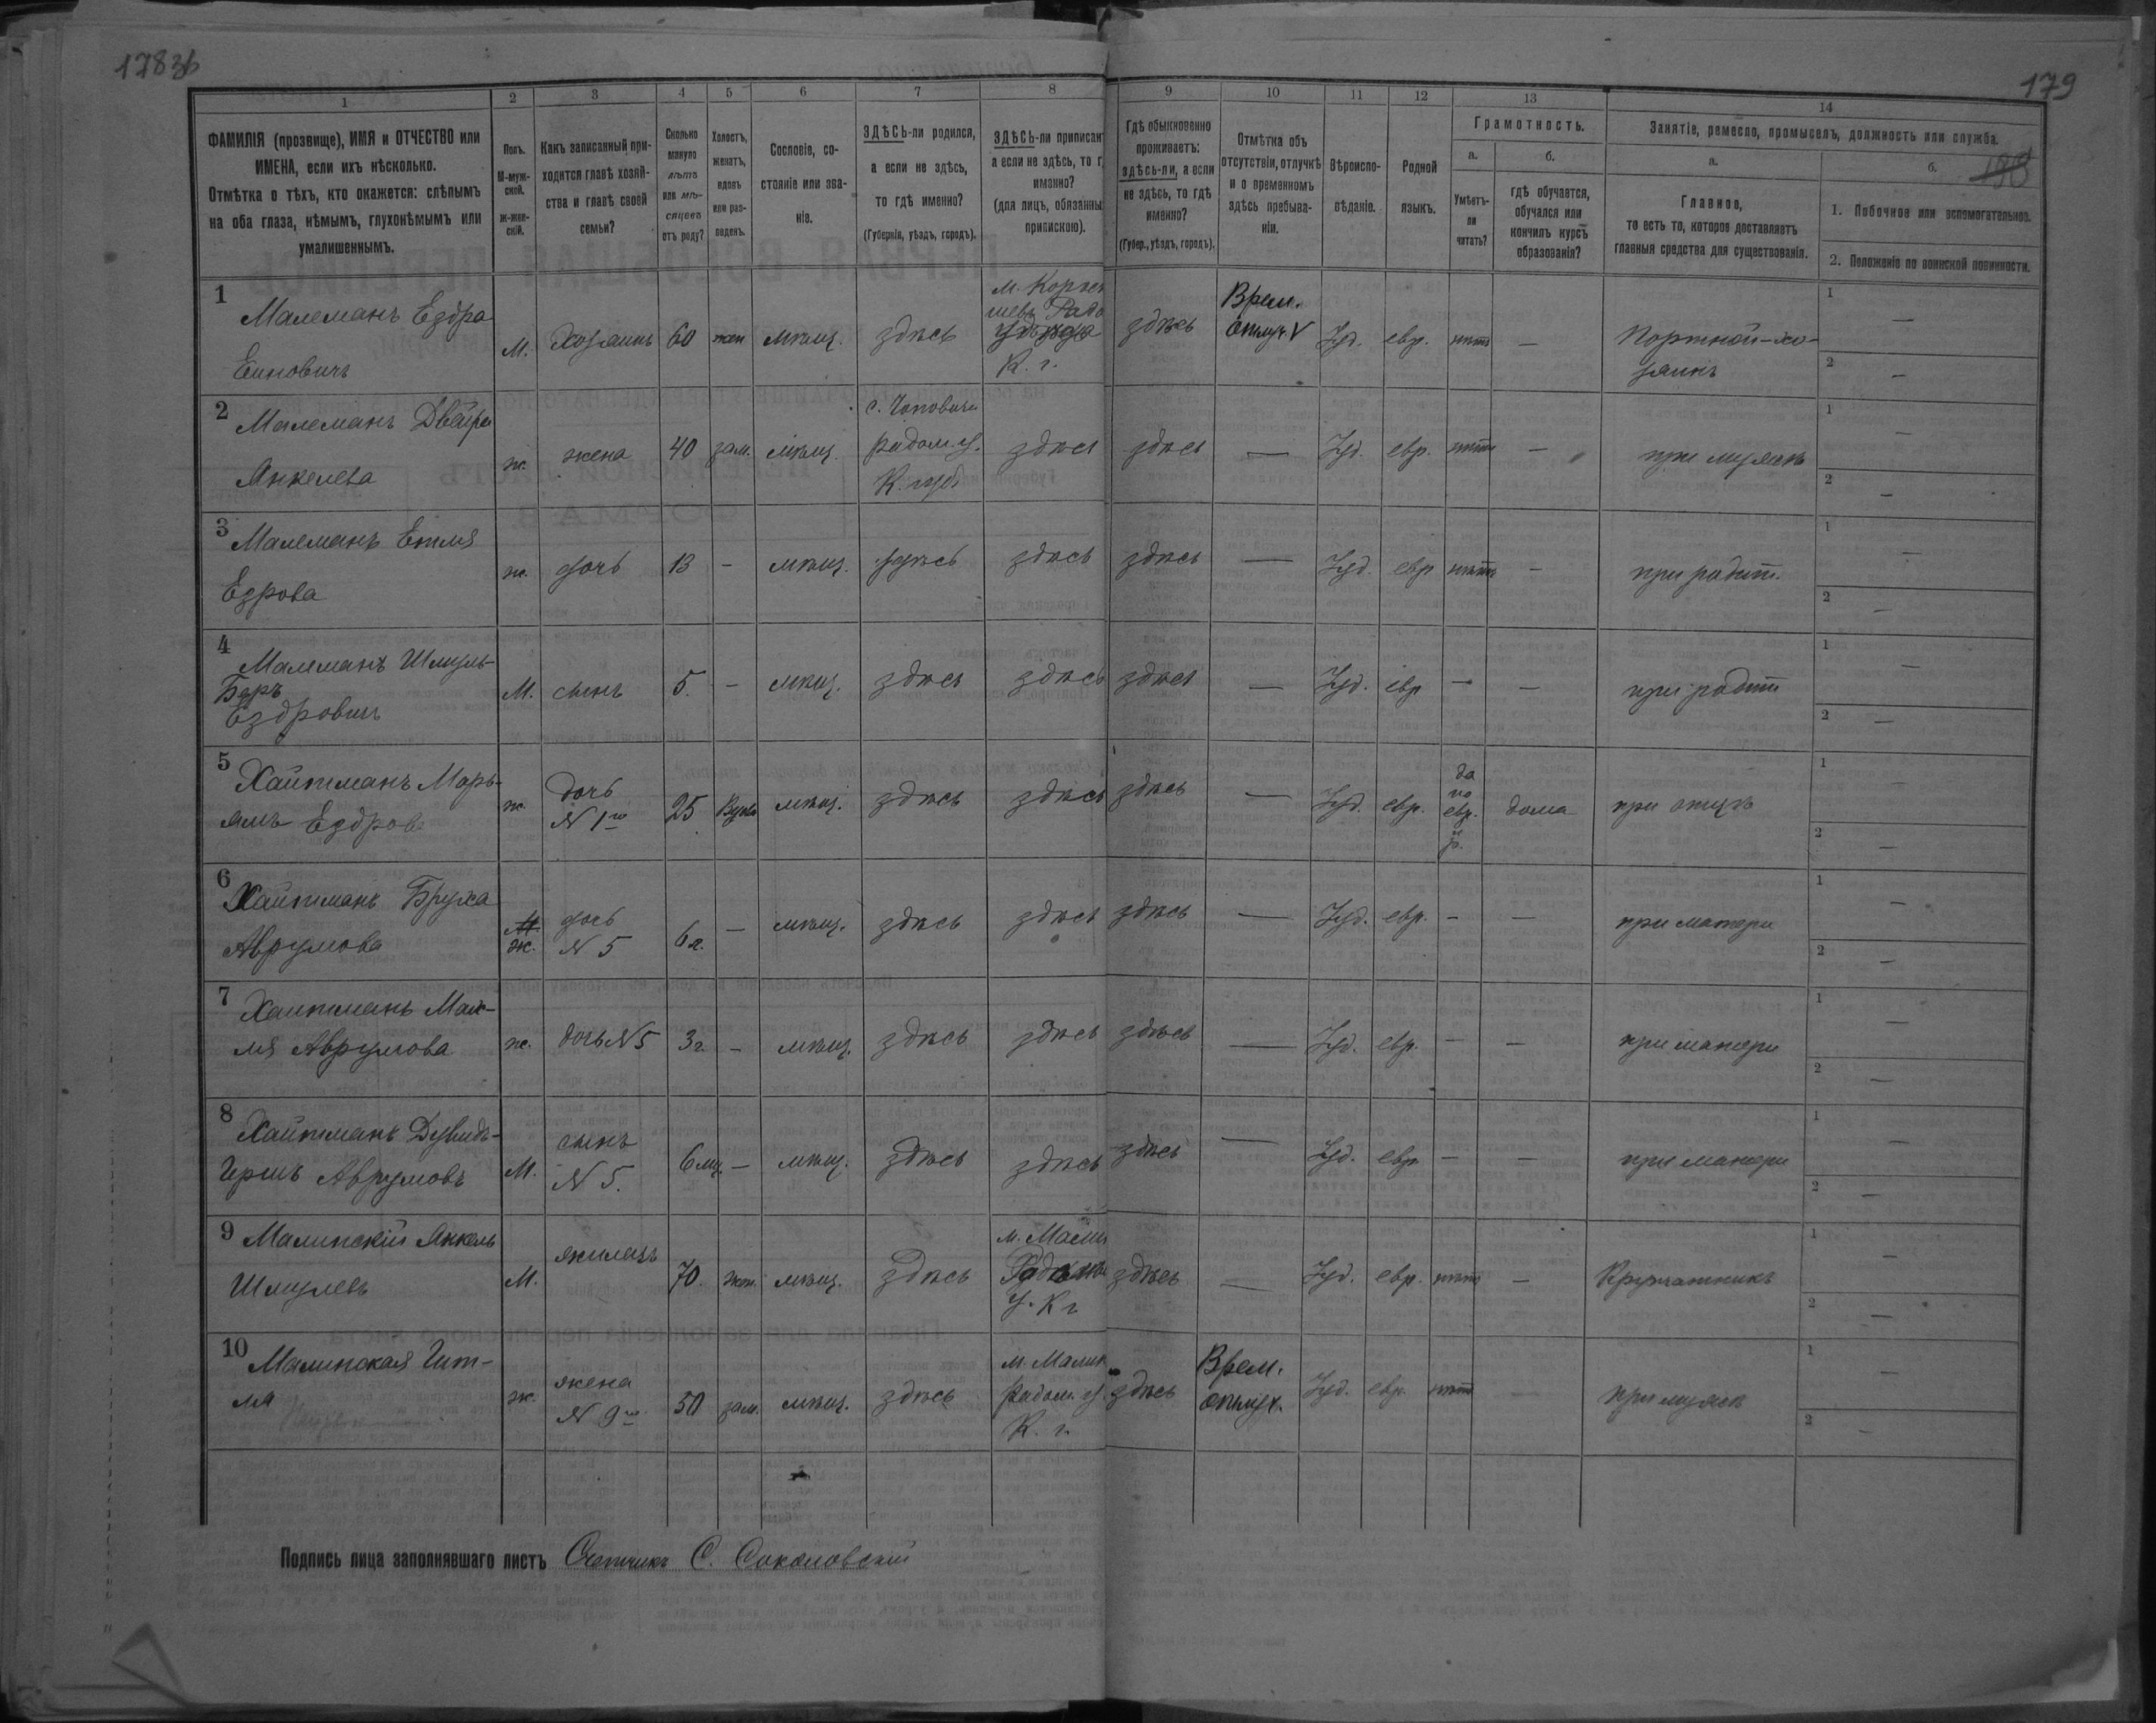 178 зв
179
188
1
2
3
4
5
6
7
8
9
10
11
12
13
14
ФАМИЛІЯ (прозвище), ИМЯ и ОТЧЕСТВО или
ИМЕНА, если ихъ нѣсколько.
Отмѣтка о тѣхъ, кто окажется: слѣпымъ
на оба глаза, нѣмымъ, глухонѣмымъ или
умалишеннымъ.
Полъ.
М-муж-
ской.
ж-жен-
скій.
Какъ записанный при-
ходится главѣ хозяй-
ства и главѣ своей
семьи?
Сколько
минуло
лѣтъ
или мѣ-
сяцевъ
отъ роду?
Холостъ,
женатъ,
вдовъ
или раз-
веденъ.
Сословіе, со-
стояніе или зва-
ніе.
ЗДѢСЬ-ли родился,
а если не здѣсь,
то гдѣ именно?
(Губернія, уѣздъ, городъ).
ЗДѢСЬ-ли приписан
а если не здѣсь, то г
именно?
(для лицъ, обязанны
припискою).
Гдѣ обыкновенно
проживаетъ:
здѣсь-ли, а если
не здѣсь, то гдѣ
именно?
(Губер., уѣздъ, городъ).
Отмѣтка объ
отсутствіи, отлучкѣ
и о временномъ
здѣсь пребыва-
ніи.
Вѣроиспо-
вѣданіе.
Родной
языкъ.
Грамотность.
а.
Умѣетъ-
ли
читать?
б.
гдѣ обучается,
обучался или
кончилъ курсъ
образованія?
Занятіе, ремесло, промыселъ, должность или служба.
а.
Главное,
то есть то, которое доставляетъ
главныя средства для существованія.
б.
1. Побочное или вспомогательное.
2. Положеніе по воинской повинности.
1 Малеманъ Ездра
М. Хозяинъ 60 жен мѣщ. здѣсь
К. г.
здѣсь Врем. отлуч. V Іуд. евр. нѣтъ — Портной-хо-
зяинъ
1 —
2 —
2 Малеманъ Двейра
Анкелева
ж. жена 40 зам. мѣщ.
с. Чоповичи
Радом. у.
К. губ.
здѣсь здѣсь — Іуд. евр. нѣтъ — при мужѣ
1 —
2 —
3 Малеманъ Етля
Ездрова
ж. дочь 13 — мѣщ. здѣсь здѣсь здѣсь — Іуд. евр нѣтъ — при родит.
1 —
2 —
4 Малеманъ Шмуль-
Беръ
Ездровичъ
М. сынъ 5. — мѣщ. здѣсь здѣсь здѣсь — Іуд. евр — — при родит
1 —
2 —
5 Хайтманъ Марь-
ямъ Ездров.
ж. дочь
N 1го
25 мѣщ. здѣсь здѣсь здѣсь — Іуд. евр.
да
по
евр.
и
р.
дома при отцѣ
1 —
2 —
6 Хайтманъ Бруха
Аврумова
М.
ж.
дочь
N 5
6 л. — мѣщ. здѣсь здѣсь здѣсь — Іуд. евр. — — при матери
1 —
2 —
7 Хаитманъ Мал-
ля Аврумова
ж. дочь N 5 3 г. — мѣщ. здѣсь здѣсь здѣсь — Іуд. евр. — — при матери
1 —
2 —
8 Хайтманъ Дувидъ-
Гершъ Аврумовъ
М. сынъ
N 5.
6 мц — мѣщ. здѣсь здѣсь здѣсь — Іуд. евр — — при матери
1 —
2 —
9 Малинскій Анкель
Шмулевъ
М. жилецъ 70. жен. мѣщ. здѣсь
м. Малин
У. К г
здѣсь — Іуд. евр. нѣтъ —
1 —
2 —
10 Малинская Гит-
ля
ж. жена
N 9го
50 зам. мѣщ. здѣсь
м. Малин
Радом. у.
К. г.
здѣсь Врем.
отлуч.
Іуд. евр. нѣтъ — при мужѣ
1 —
2 —
Подпись лица заполнявшаго листъ Счетчикъ С. Соколовскій